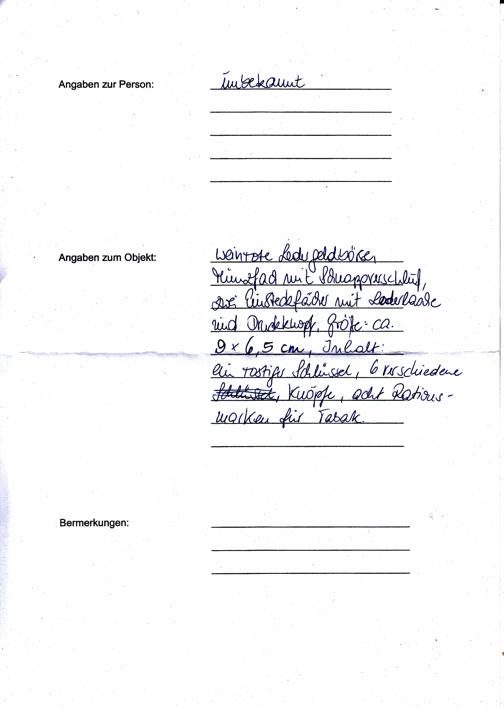 Angaben zur Person: unbekannt
Angaben zum Objekt: weinrote Ledergeldbörse,
Münzfach mit Schnappverschluß,
zwei Einsteckfächer mit Lederlasche
und Druckknopf, Größe: ca.
9 x 6,5 cm, Inhalt:
ein rostiger Schlüssel, 6 verschiedene
Schlüssel, Knöpfe, acht Rations-
marken für Tabak.
Bermerkungen: